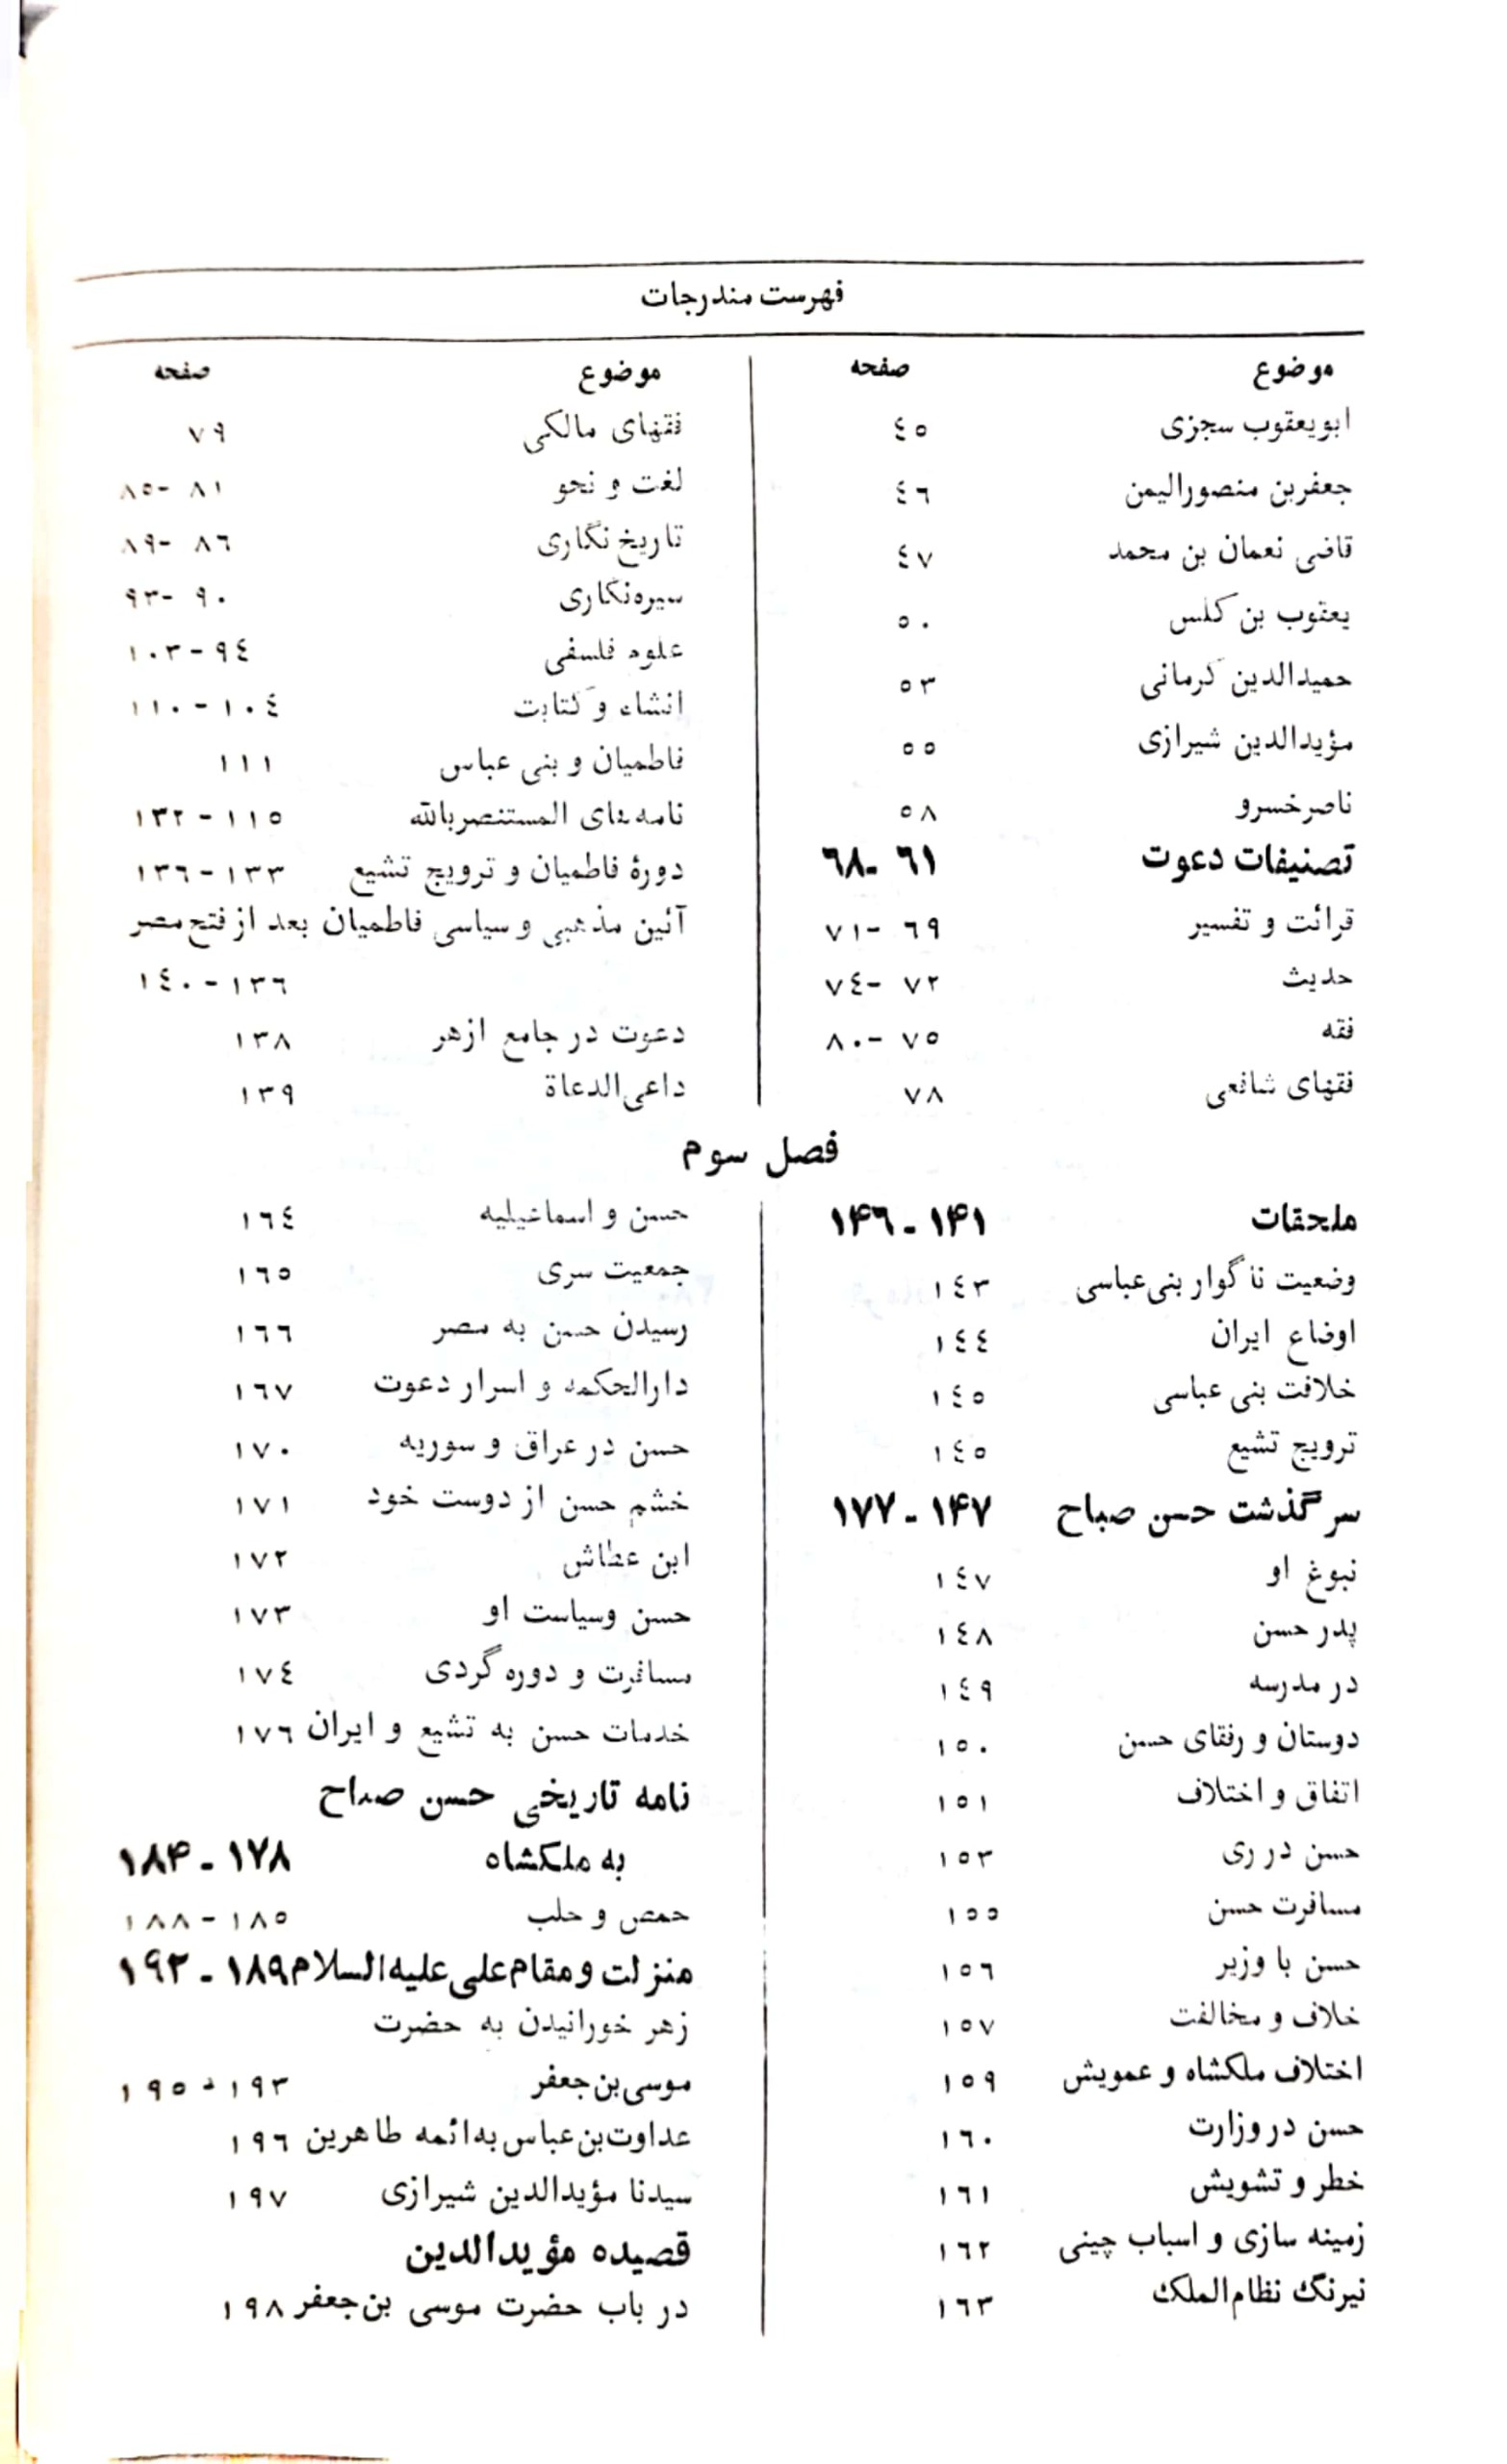 فهرست مندرجات
موضوع صفحه
ابویعقوب سجزی ٤٥
جعفربن منصورالیمن ٤٦
قاضی نعمان بن محمد ٤٧
یعقوب بن کلس ٥٠
حمیدالدین کرمانی ٥٣
مؤیدالدین شیرازی ٥٥
ناصرخسرو ٥٨
تصنیفات دعوت ٦١ -٦٨
قرائت و تفسیر ٦٩ -٧١
حدیث ٧٢ -٧٤
فقه ٧٥ -٨٠
فقهای شافعی ٧٨
موضوع صفحه
فقهای مالکی ٧٩
لغت و نحو ٨١ -٨٥
تاریخ نگاری ٨٦ -٨٩
سیره‌نگاری ٩٠ -٩٣
علوم فلسفی ٩٤-١٠٣
انشاء و کتابت ١٠٤-١١٠
فاطمیان و بنی عباس ١١١
نامه‌های المستنصربالله ١١٥-١٣٢
دورهٔ فاطمیان و ترویج تشیع ١٣٣-١٣٦
آئین مذهبی و سیاسی فاطمیان بعد از فتح مصر
١٣٦-١٤٠
دعوت در جامع ازهر ١٣٨
داعی‌الدعاة ١٣٩
فصل سوم
ملحقات ۱۴۱-۱۴٦
وضعیت ناگوار بنی‌عباسی ١٤٣
اوضاع ایران ١٤٤
خلافت بنی عباسی ١٤٥
ترویج تشیع ١٤٥
سرگذشت حسن صباح ۱۴۷-۱۷۷
نبوغ او ١٤٧
پدر حسن ١٤٨
در مدرسه ١٤٩
دوستان و رفقای حسن ١٥٠
اتفاق و اختلاف ١٥١
حسن در ری ١٥٣
مسافرت حسن ١٥٥
حسن با وزیر ١٥٦
خلاف و مخالفت ١٥٧
اختلاف ملکشاه و عمویش ١٥٩
حسن در وزارت ١٦٠
خطر و تشویش ١٦١
زمینه سازی و اسباب چینی ١٦٢
نیرنگ نظام‌الملک ١٦٣
حسن و اسماعیلیه ١٦٤
جمعیت سری ١٦٥
رسیدن حسن به مصر ١٦٦
دارالحکمه و اسرار دعوت ١٦٧
حسن در عراق و سوریه ١٧٠
خشم حسن از دوست خود ١٧١
ابن عطاش ١٧٢
حسن وسیاست او ١٧٣
مسافرت و دوره گردی ١٧٤
خدمات حسن به تشیع و ایران ١٧٦
نامه تاریخی حسن صباح
به ملکشاه ۱۷۸-۱۸۴
حمص و حلب ١٨٥-١٨٨
منزلت و مقام علی علیه‌السلام ۱۸۹-۱۹۲
زهر خورانیدن به حضرت
موسی‌بن‌جعفر ١٩٣-١٩٥
عداوت‌بن‌عباس به‌ائمه طاهرین ١٩٦
سیدنا مؤیدالدین شیرازی ١٩٧
قصیده مؤیدالدین
در باب حضرت موسی بن‌جعفر ١٩٨